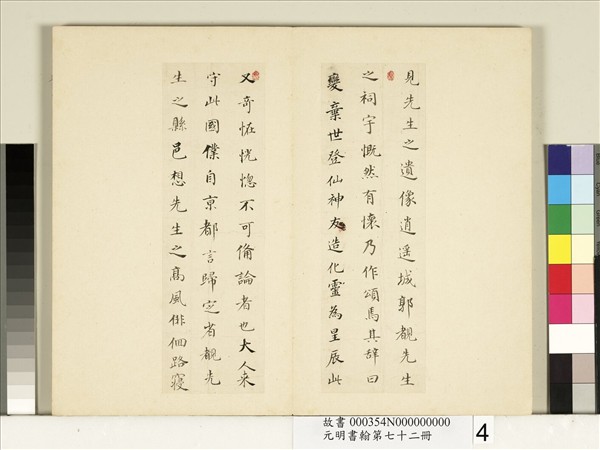 見先生之遺像逍遥城郭覩先生
之祠宇慨然有懷乃作頌焉其辞曰
變棄世登仙神友造化靈為星辰此
又奇怪恍惚不可備論者也大人来
守此國僕自京都言歸定省覩先
生之縣邑想先生之高風俳佪路寝
故書 000354N000000000
元明書翰第七十二冊
4